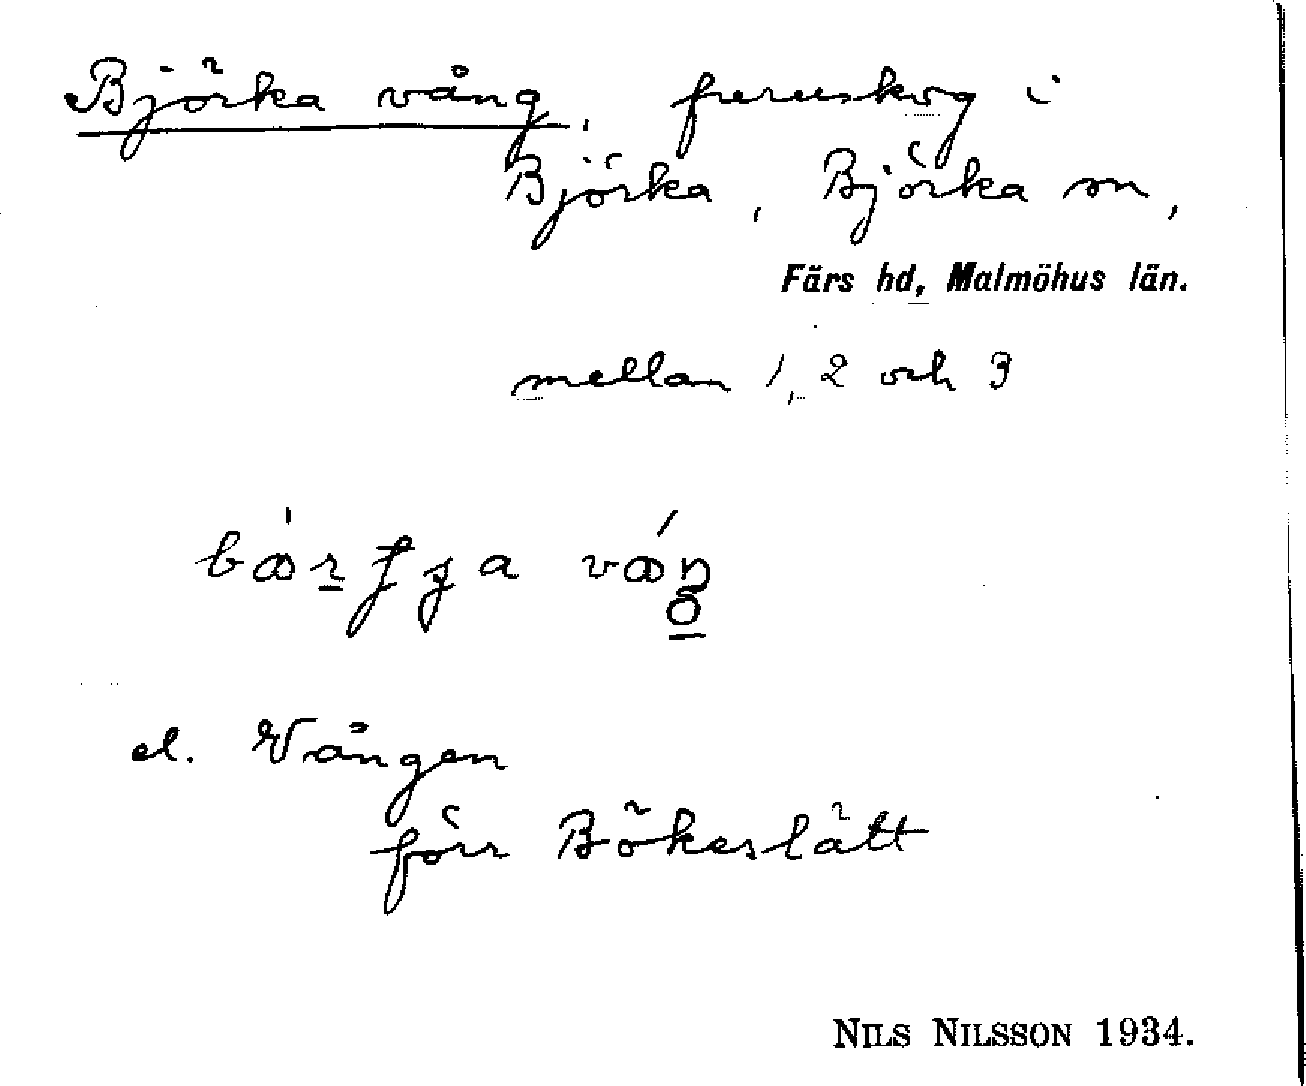 Björka vång, furuskog i
Björka, Björka sn,
Färs hd, Malmöhus län.
mellan 1, 2 och 3
el. Vången
förr Bökeslätt
NILS NILSSON 1934.